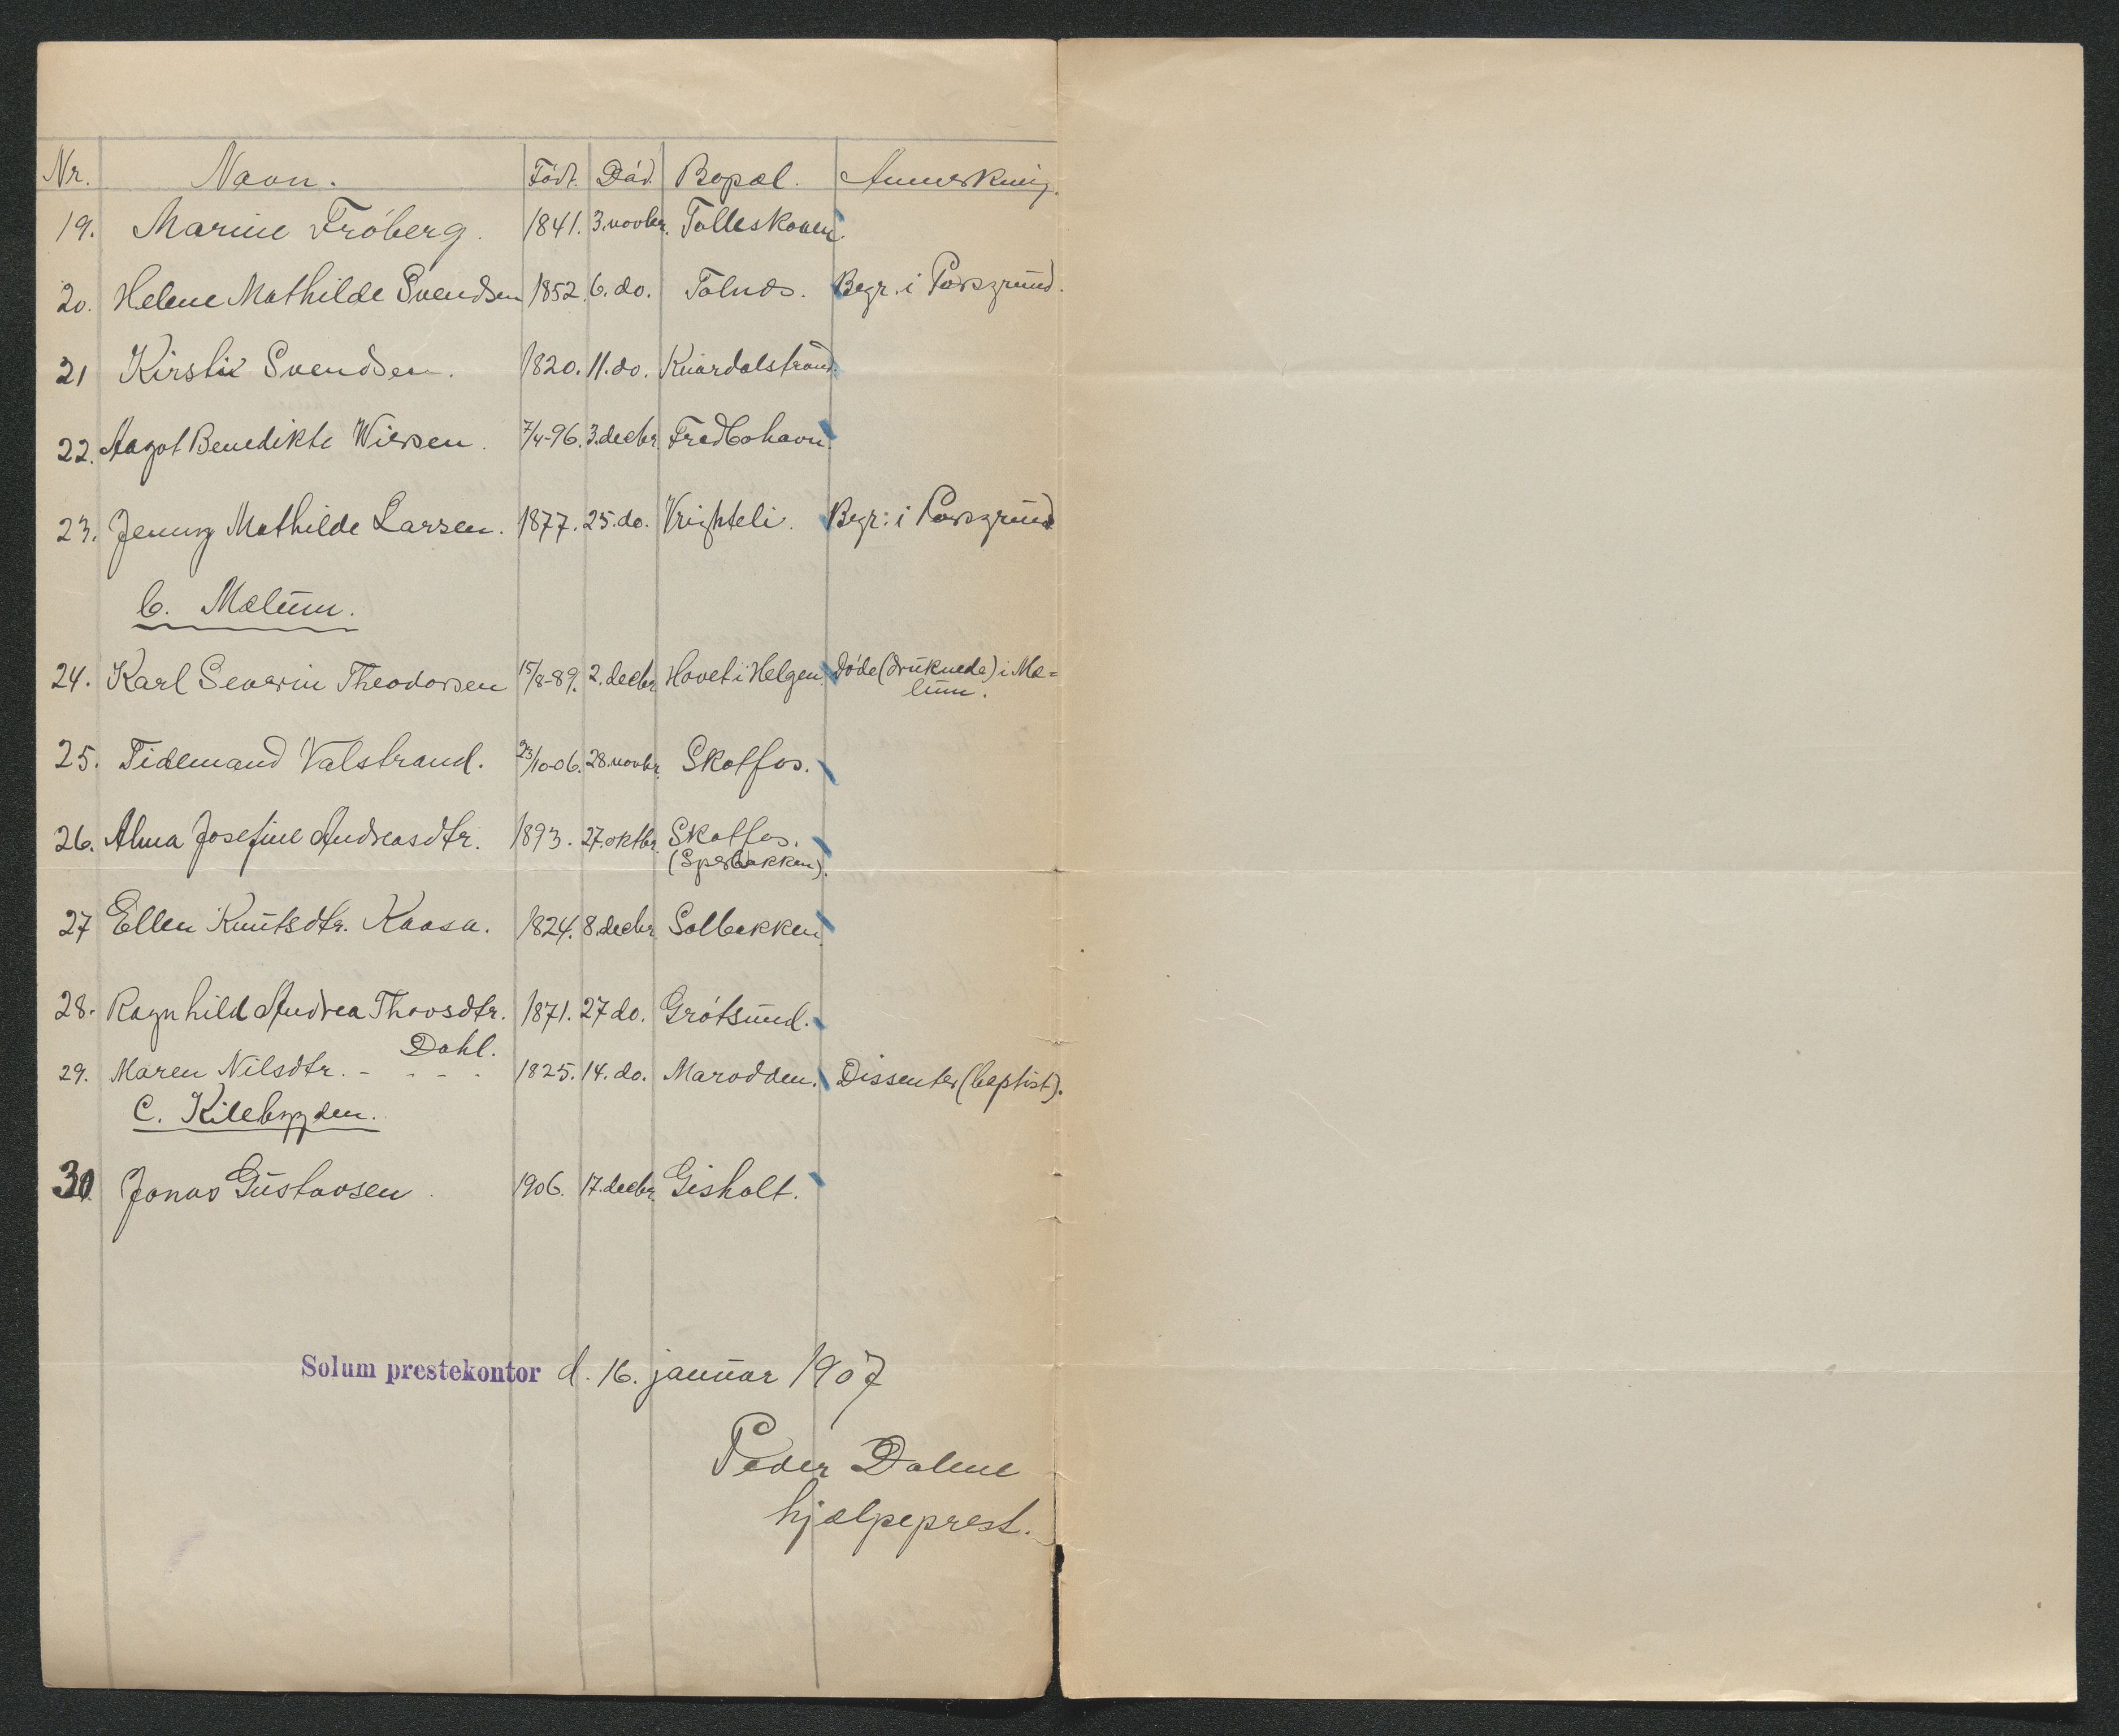 Nr. Navn. Född. Död. Bopæl. Anmerkning.
19. Marine Fröberg. 1841. 3. novbr. Tolleskoven.
20. Helene Mathilde Svendsen 1852. 6. do. Tolnæs. Begr. i Porsgrund.
21 Kirsti Svendsen. 1820. 11. do. Knardalstrand.
22. Aagot Benedikte Wiersen. 7/4-96. 3. decbr. Fredbohavn.
23. Jenny Mathilde Larsen. 1877. 25. do. Vrighteli. Begr: i Porsgrund
b. Melum.
24. Karl Severin Theodorsen 15/8-89. 2. decbr. Hovet i Helgen. Döde (druknede) i Me=
lum.
25. Tidemand Valstrand. 23/10-06. 28. novbr. Skotfos.
26. Alma Josefine Andreasdtr. 1893. 27. oktbr. Skotfos.
(Sperbakken).
27 Ellen Knutsdtr. Kaasa. 1824. 8. decbr. Solbakken
28. Ragnhild Andrea Thovsdtr. 1871. 27 do. Grötsund.
Dahl.
29. Maren Nilsdtr. - - - - 1825. 14. do. Marodden. Dissenter (baptist).
C. Kilebygden.
30. Jonas Gustavsen. 1906. 17. decbr. Gisholt.
Solum prestekontor d. 16. januar 1907
Peder Dalene
hjælpeprest.